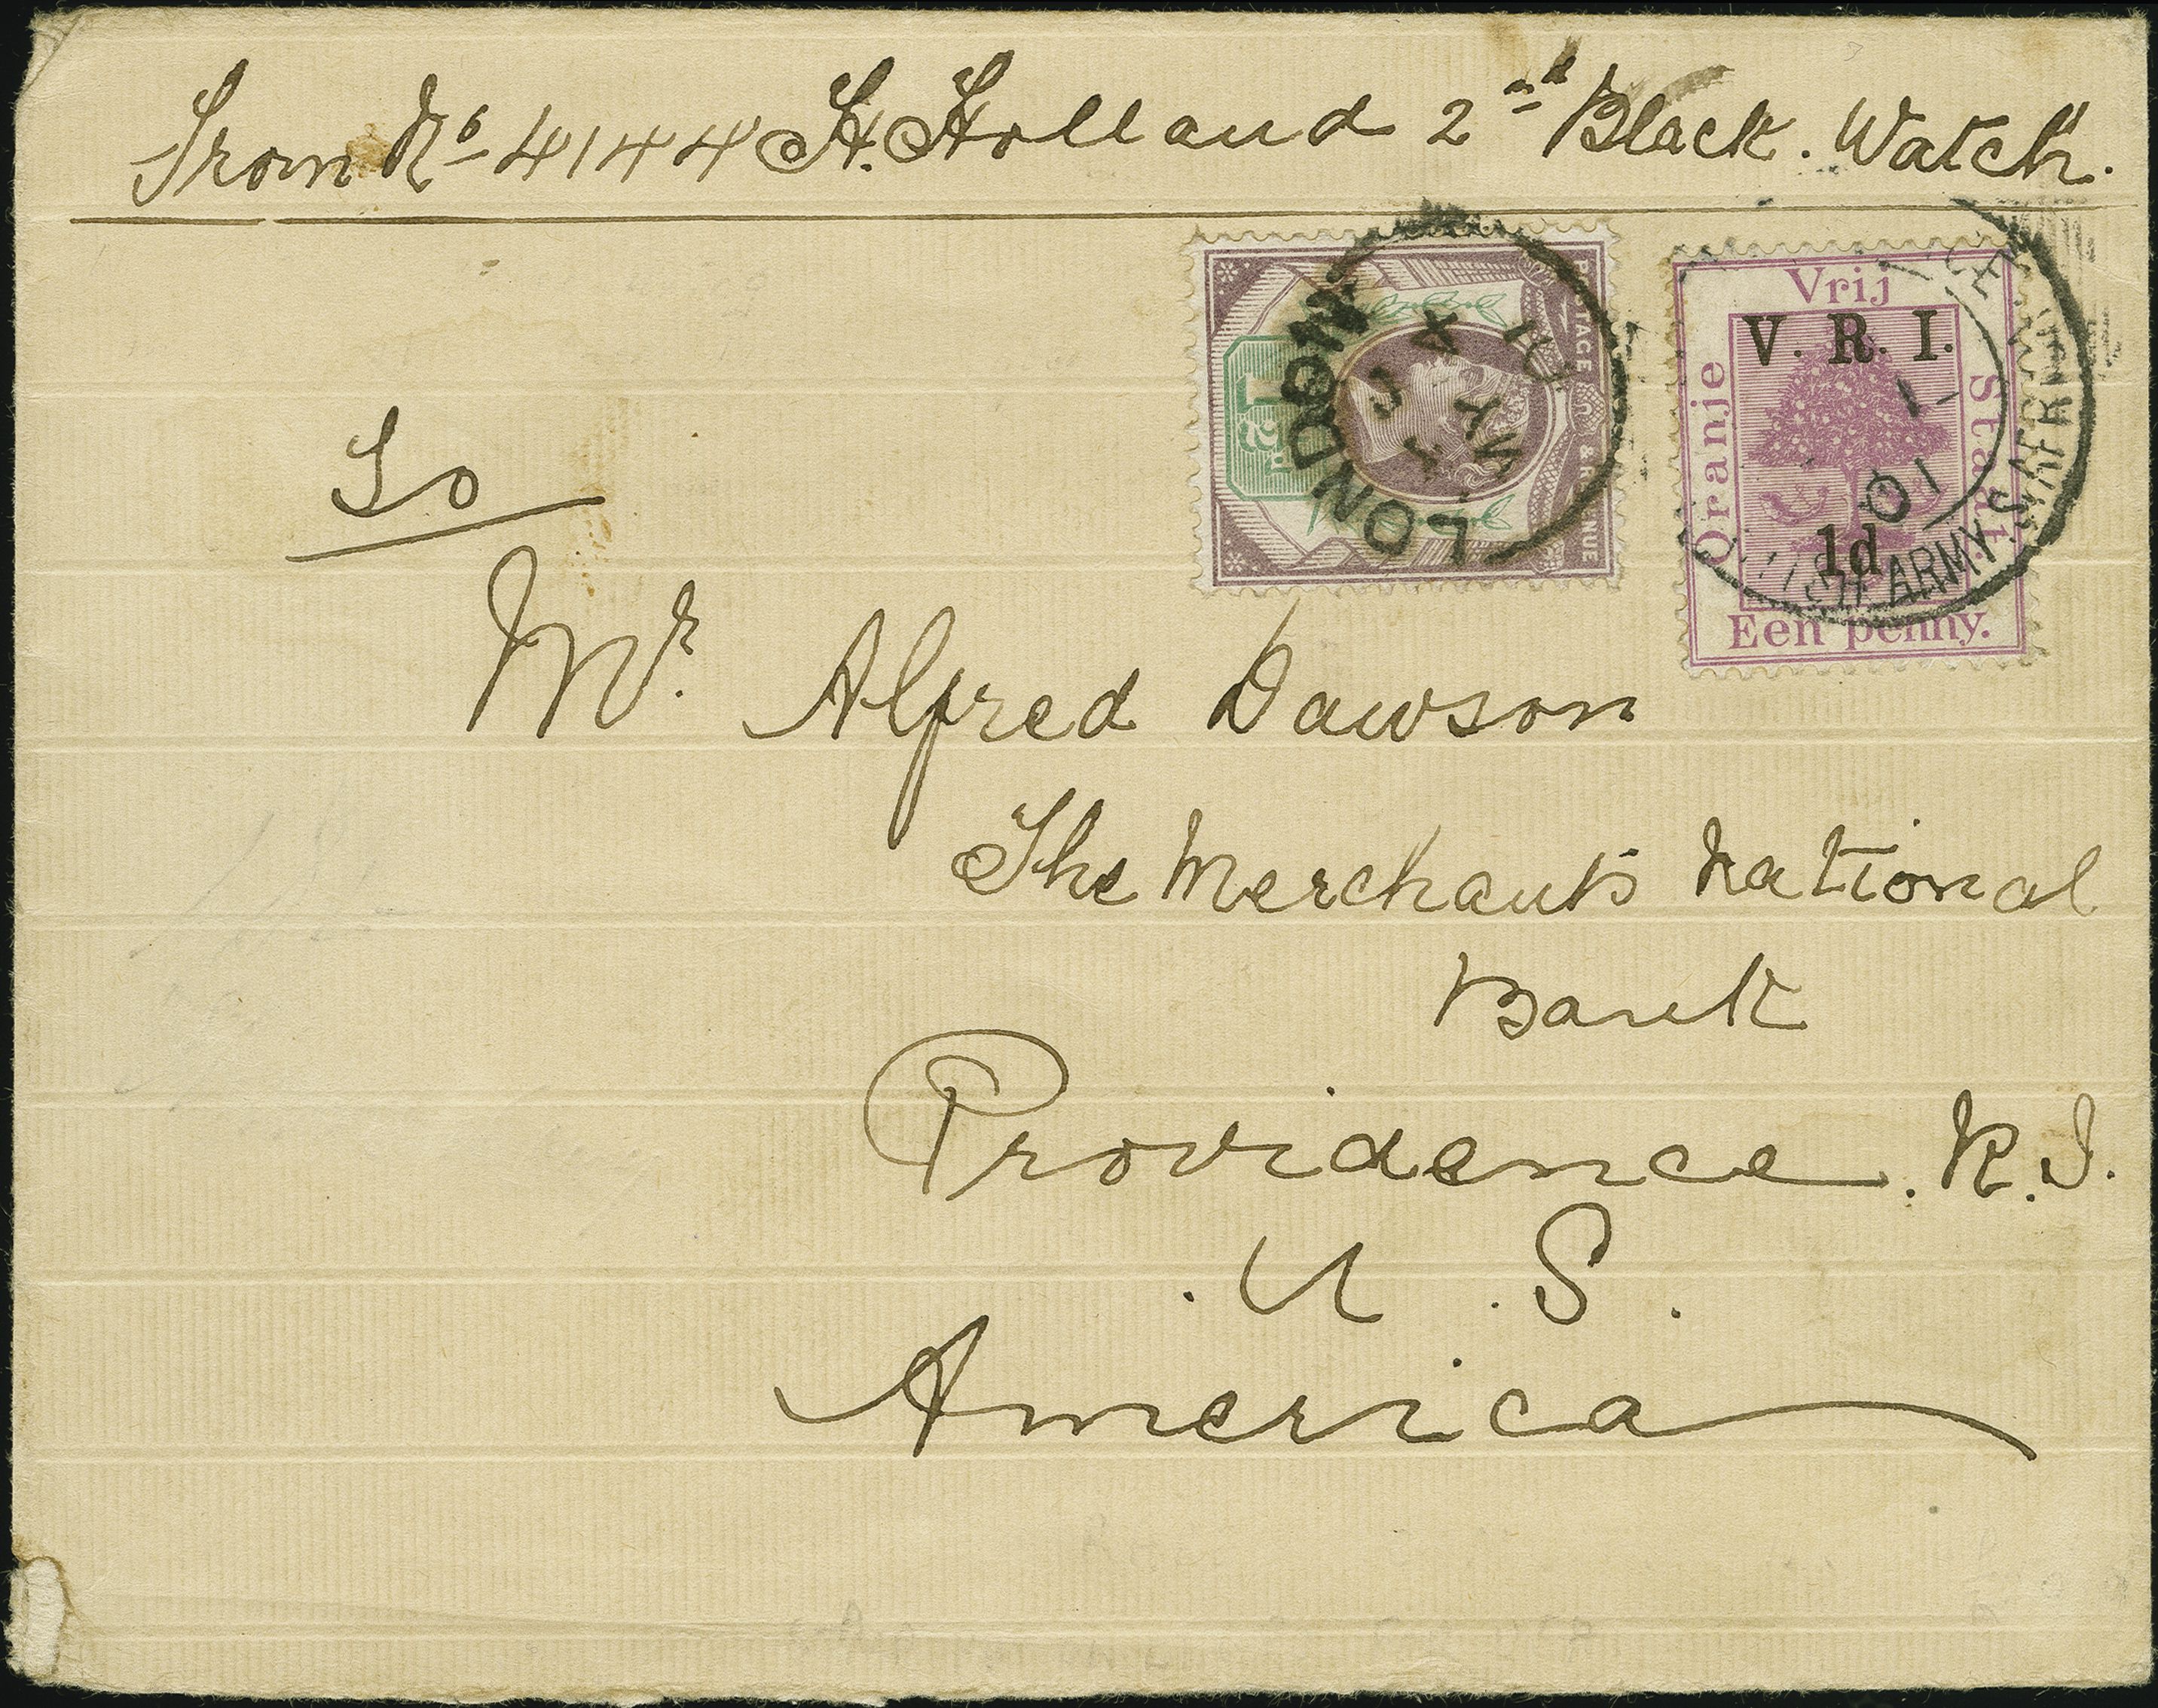 From No 4144 H. Holland 2nd Black. Watch.
POSTAGE & REVENUE
1½d
LONDON
MY 4
01
Vrij
V. R. I.
Oranje
Staat.
1d
Een penny.
01
ARMY. S. AFRICA
To
Mr. Alfred Dawson
The Merchants National
Bank
Providence. R.I.
. U . S .
America